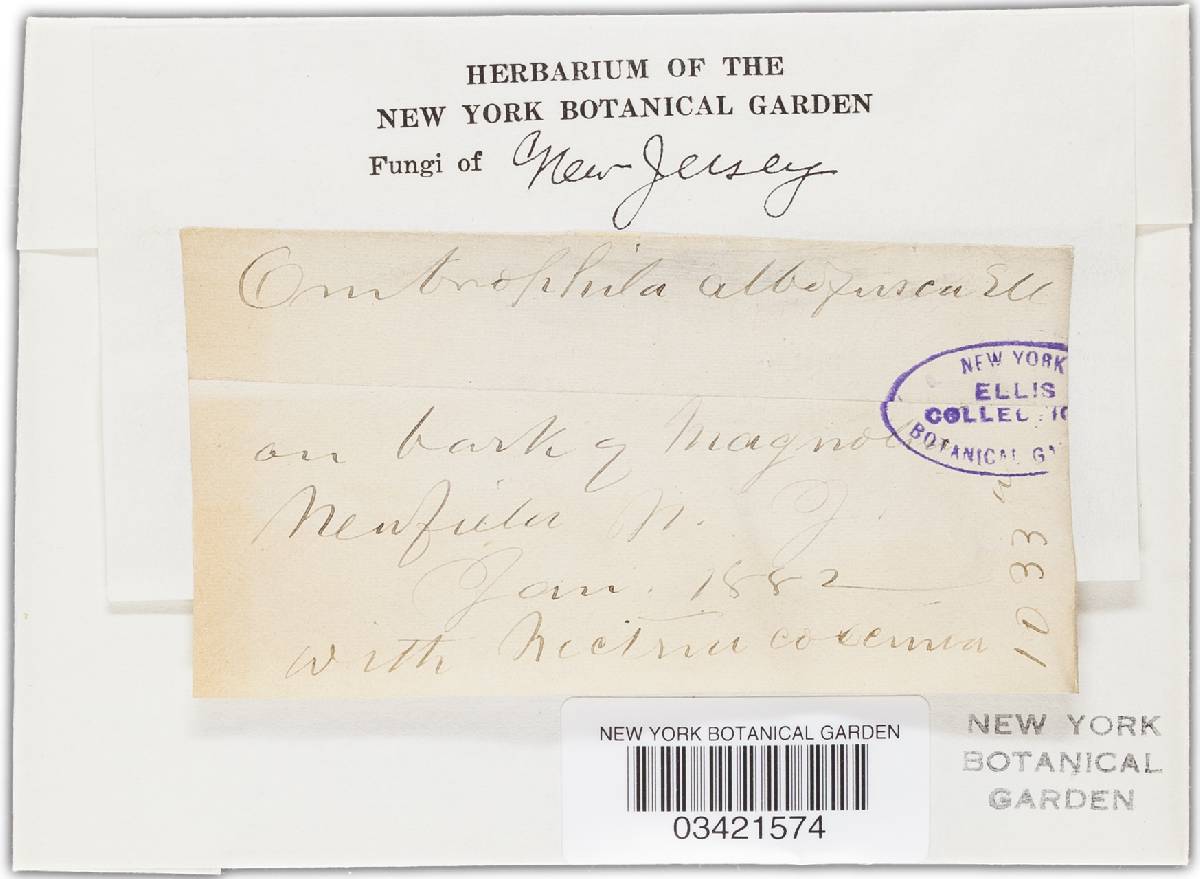 HERBARIUM OF THE
NEW YORK BOTANICAL GARDEN
Fungi of New Jersey
Ombrophila albofusca Ell
NEW YORK
ELLIS
COLLECTIO
BOTANICAL GA
on bark of Magnol
Newfield N. J.
Jan. 1882
with Nectria coccinea
1033
NEW YORK BOTANICAL GARDEN
03421574
NEW YORK
BOTANICAL
GARDEN